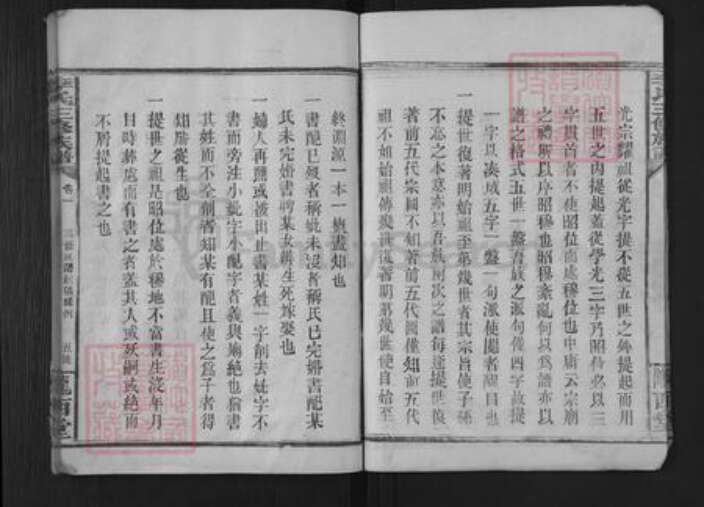 光宗耀祖從光字提不從五世之外提起而用
五世之內提起蓋從學光三字乃昭穆必以三
字貫首者不使昭位而處穆位也中庸云宗廟
之禮所以序昭穆也昭穆紊亂何以為譜亦以
譜之格式五世一盤吾族之派句僅四字故提
一字以湊成五字一盤一句派使閱者醒目也
一提世復著明始祖至第幾世者其宗旨使子孫
不忘之本意亦以吾族前次之譜每逢提世復
著前五代宗圖不如著前五代圖僅知前五代
祖不如始祖傳幾世復著明第幾世使自始至
終淵源一本一覽盡知也
一書配已歿者稱妣未沒者稱氏已完婚書配某
氏未完婚書聘某女辨生死嫁娶也
一婦人再醮或被出止書某姓一字削去妣字不
書而旁注小妣字小配字者義與廟絕也猶書
其姓而不全削者知某有配且使之為子者得
知所從生也
一提世之祖是昭位處於穆地不富書生沒年月
日時葬處而有書之者蓋其人或夭嗣或絕而
不屑提起書之也
李氏三修族譜
卷一
五
隴西堂